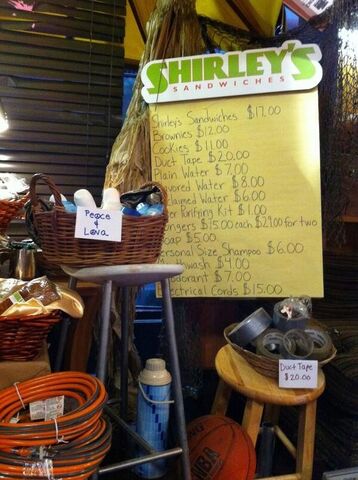 SHIRLEY'S
SANDWICHES
Shirley's Sandwiches $17.00
Brownies $12.00
Cookies $11.00
Duct Tape $20.00
Plain Water $7.00
avored Water $8.00
claimed Water $6.00
er Purifying Kit $1.00
ngers $15.00 each $29.00 for two
oap $5.00
ersonal Size Shampoo $6.00
thwash $4.00
odorant $7.00
lectrical Cords $15.00
Peace
&
Love
Duct Tape
$20.00